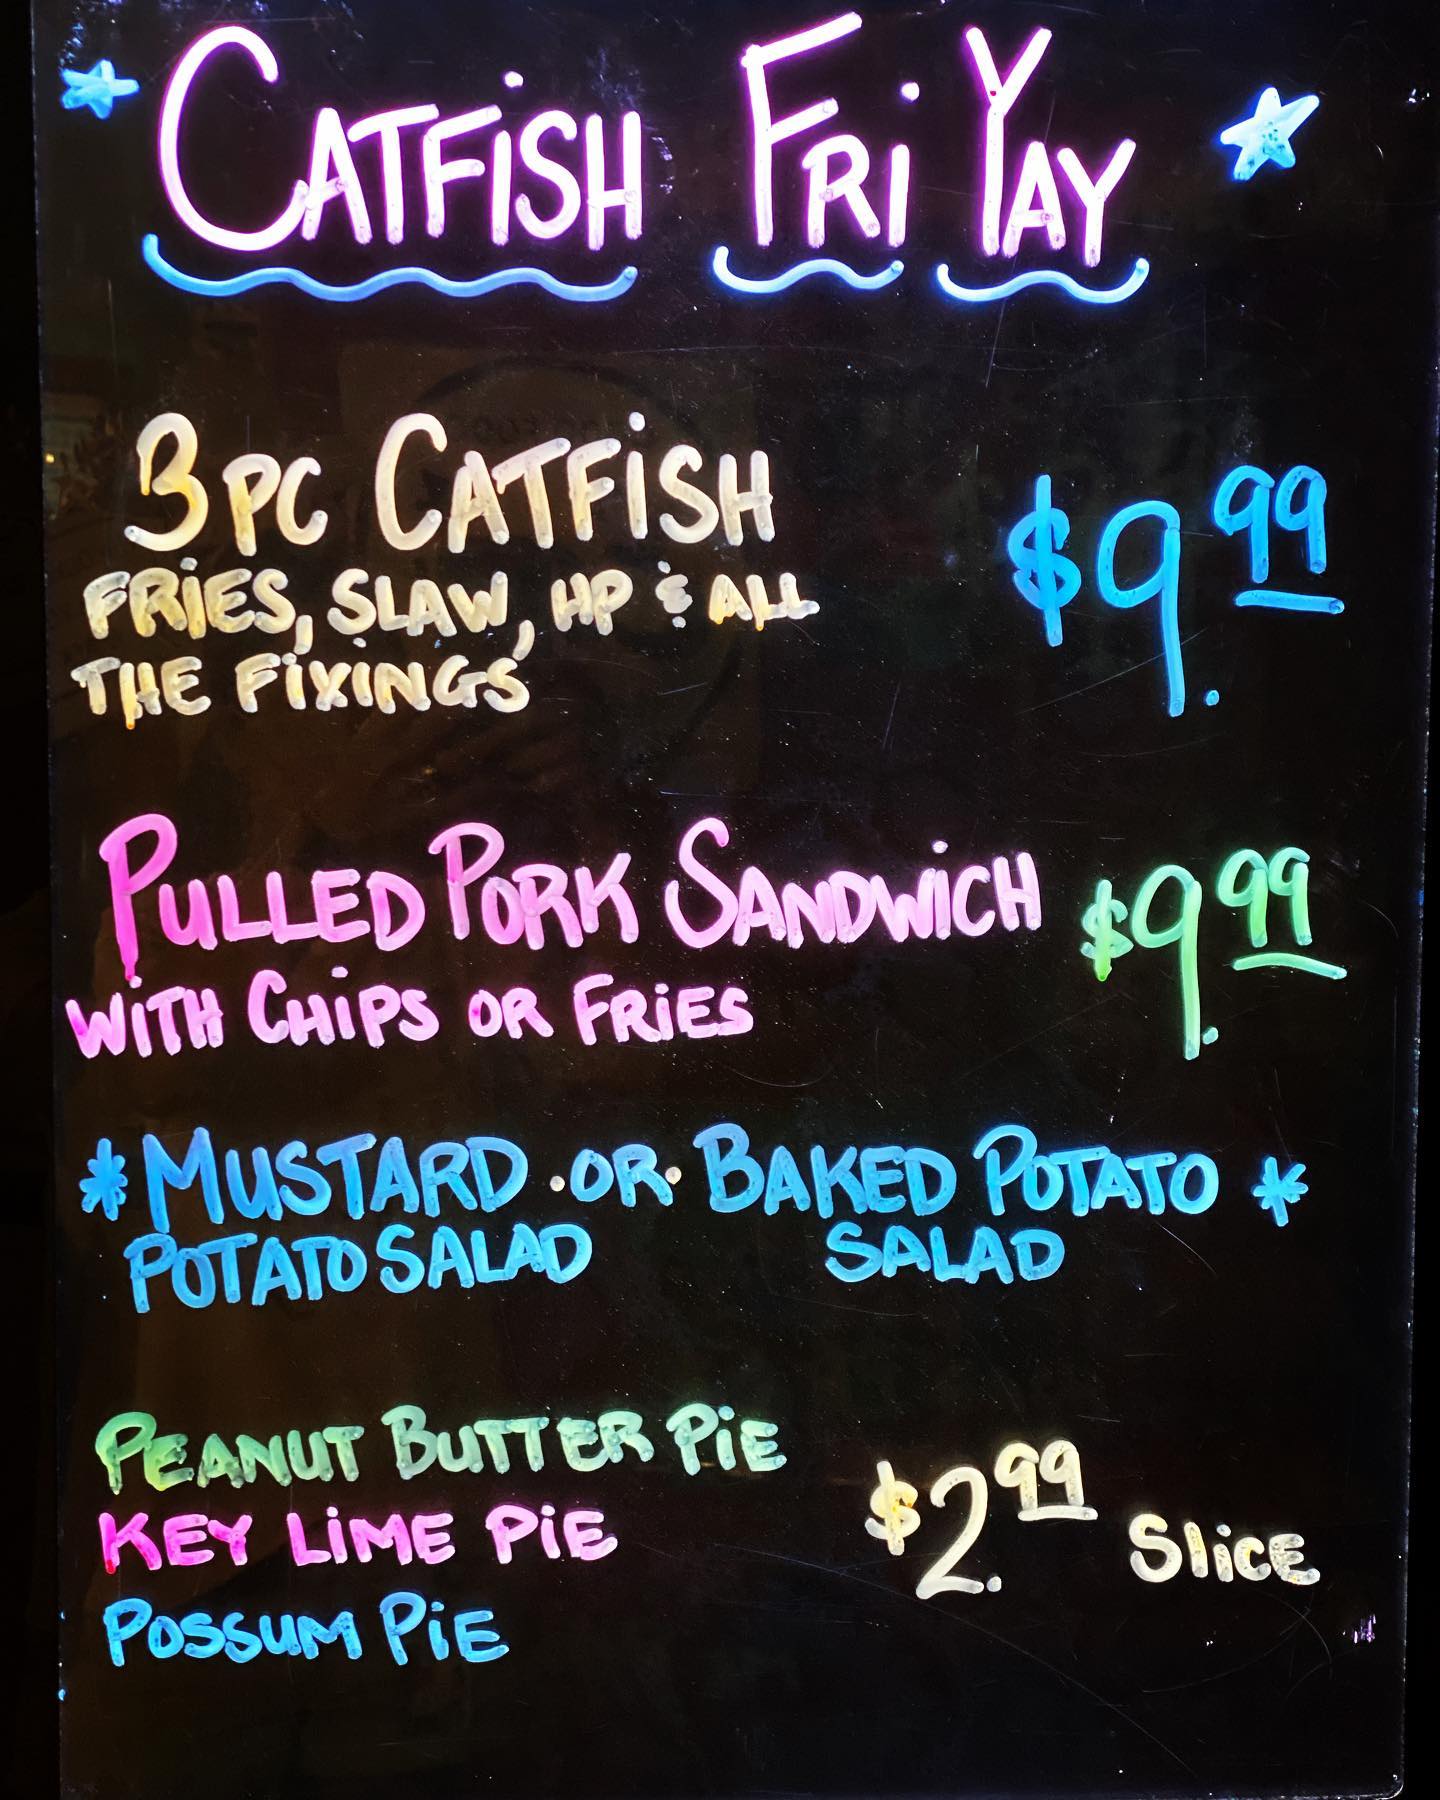 CATFISH FRI YAY
3 PC CATFISH $9.99
FRIES, SLAW, HP & ALL
THE FIXINGS
PULLED PORK SANDWICH $9.99
WITH CHIPS OR FRIES
* MUSTARD · OR · BAKED POTATO *
POTATO SALAD SALAD
PEANUT BUTTER PIE
KEY LIME PIE $2.99 SLICE
POSSUM PIE